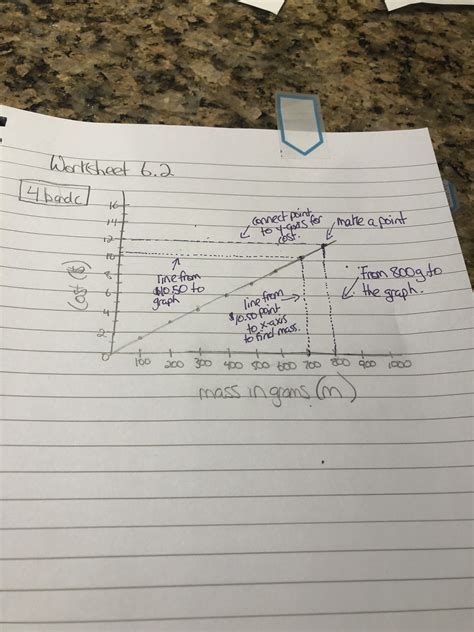 Worksheet 6.2
4 b and c
16
14
12
10
8
6
4
2
0
Cost ($)
connect point
to y-axis for
cost.
make a point
line from
$10.50 to
graph
line from
$10.50 point
to x-axis
to find mass.
From 800g to
the graph.
100 200 300 400 500 600 700 800 900 1000
mass in grams (m)